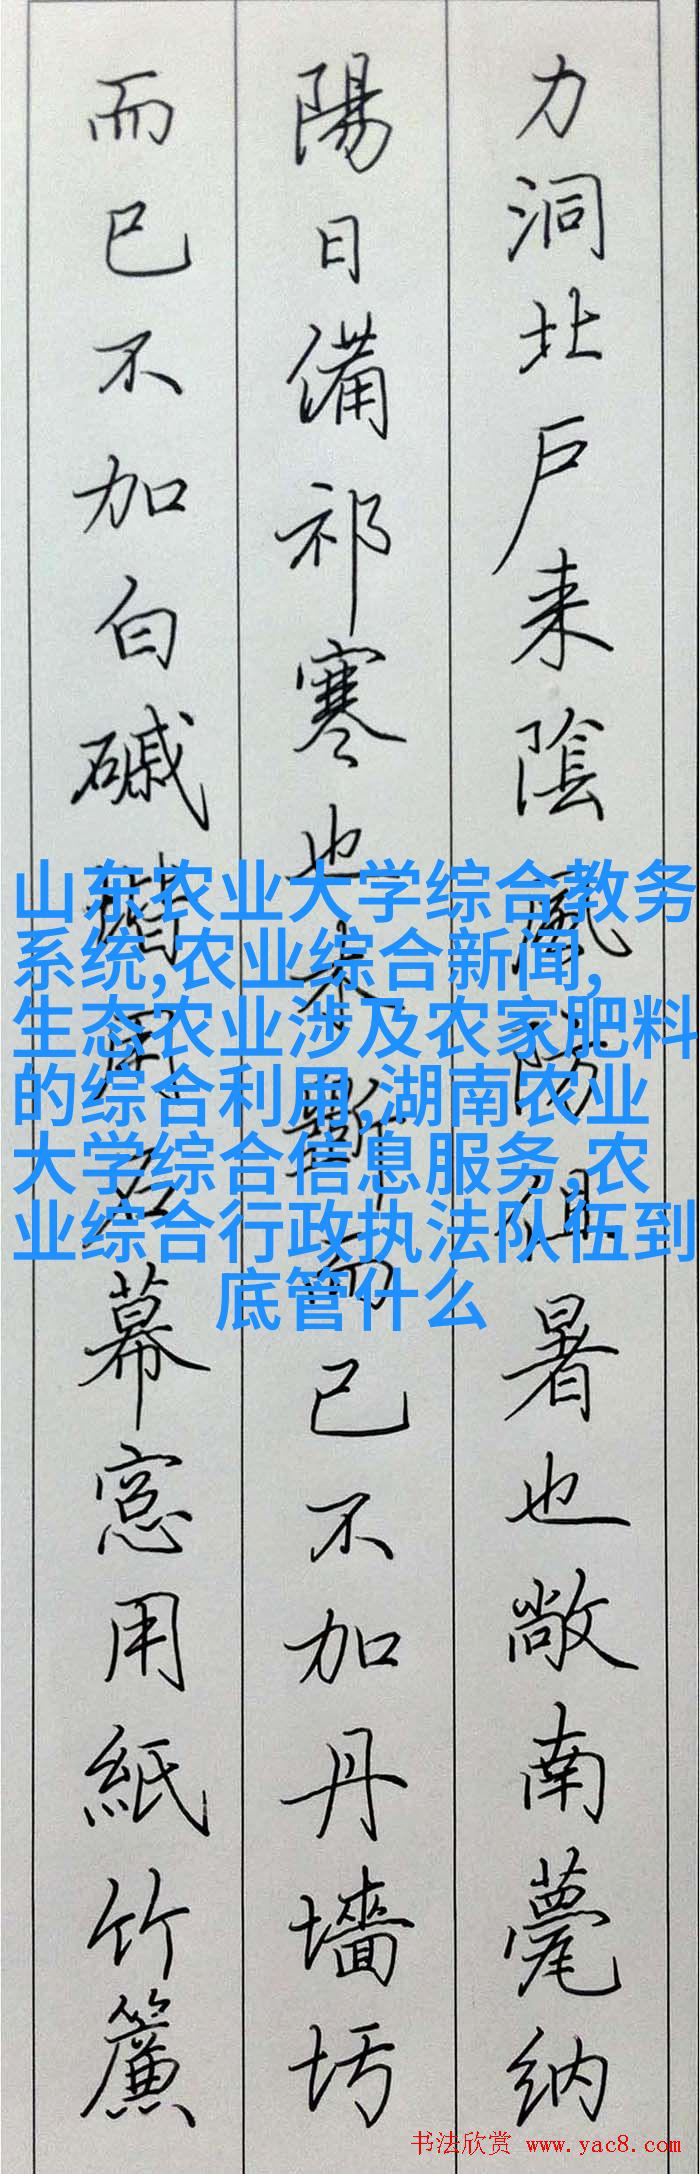 力洞北戶来陰風防徂暑也敞南甍纳
陽日備祁寒也木斲而已不加丹墻圬
而已不加白磩堦用石幕窓用紙竹簾
山东农业大学综合教务
系统,农业综合新闻,
生态农业涉及农家肥料
的综合利用,湖南农业
大学综合信息服务,农
业综合行政执法队伍到
底管什么
书法欣赏 www.yac8.com